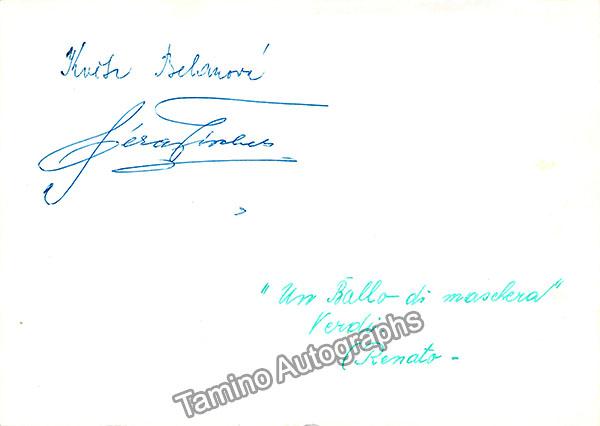 Květa Belanová
Géza Fischer
"Un Ballo di maschera"
Verdi
(Renato -
Tamino Autographs